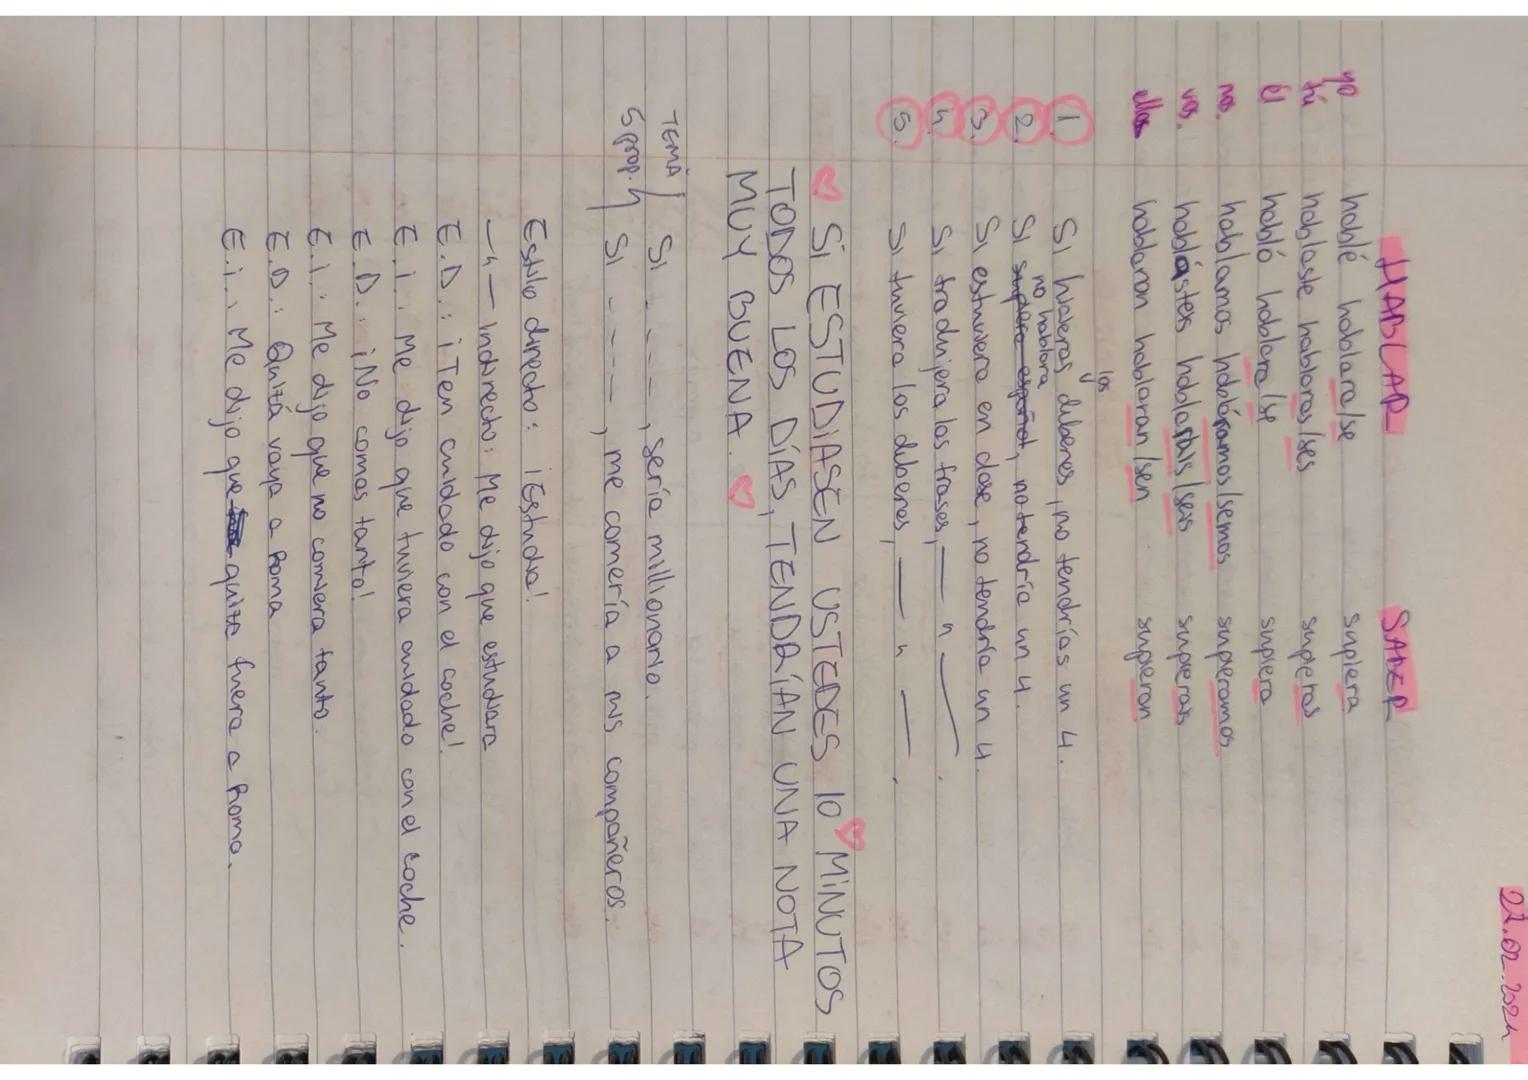 27.02.2024
HABLAR SABER
yo hablé hablara/se supiera
tú hablaste hablaras/ses supieras
él habló hablara/se supiera
nos. hablamos habláramos/semos supieramos
vos. hablásteis hablarais/seis supierais
ellos hablaron hablaran/sen supieran
1. Si hicieras los deberes, no tendrías un 4.
2. Si supiera español, no hablara no tendría un 4.
3. Si estuviera en clase, no tendría un 4.
4. Si tradujera las frases, — " — .
5. Si tuviera los deberes, — " — .
♡ Si ESTUDiASEN USTEDES 10 ♡ MiNUTOS
TODOS LOS DÍAS, TENDRÍAN UNA NOTA
MUY BUENA. ♡
TEMA Si - - - -, sería millionario.
5 prop. Si - - - -, me comería a mis compañeros.
Estilo directo: ¡Estudia!
—"— indirecto: Me dijo que estudiara
E.D.: ¡Ten cuidado con el coche!
E.i.: Me dijo que tuviera cuidado con el coche.
E.D.: ¡No comas tanto!
E.i.: Me dijo que no comiera tanto.
E.D.: Quizá vaya a Roma
E.i.: Me dijo que quizá fuera a Roma.